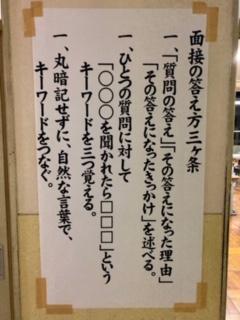 面接の答え方三ヶ条
一、「質問の答え」「その答えになった理由」
「その答えになったきっかけ」を述べる。
一、ひとつの質問に対して
「〇〇〇を聞かれたら□□□」という
キーワードを三つ覚える。
一、丸暗記せずに、自然な言葉で、
キーワードをつなぐ。